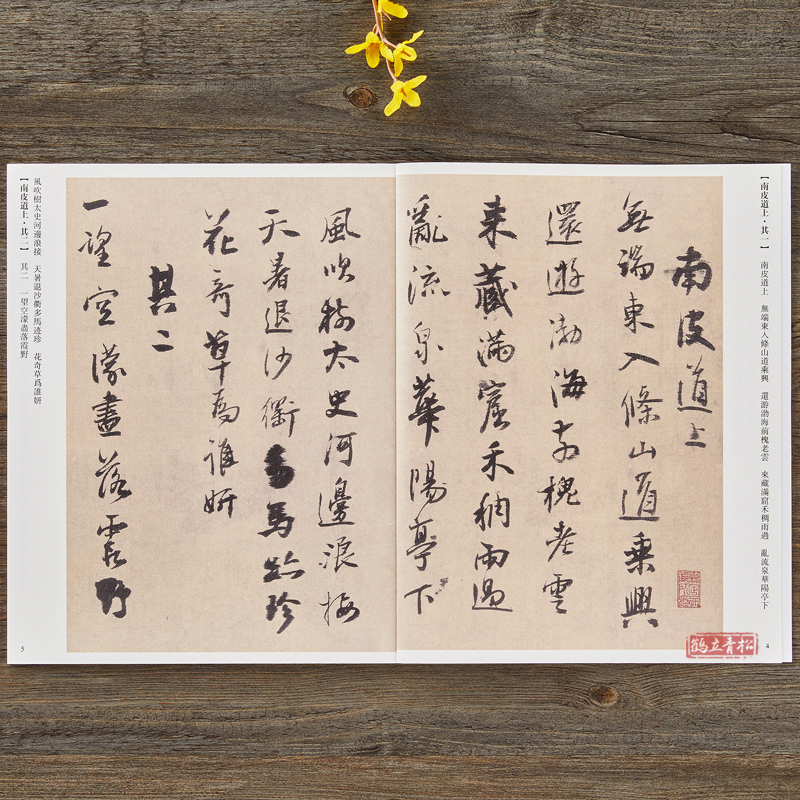 【南皮道上·其一】 南皮道上 無端東入條山道乘興 還游渤海前槐老雲 來藏滿窟禾稠雨過 亂流泉華陽亭下
南皮道上
無端東入條山道乘興
還遊渤海前槐老雲
來藏滿窟禾稠雨過
亂流泉華陽亭下
鶴立青松
4
風吹樹太史河邊浪接
天暑退沙衢多馬跡珍
花奇草為誰妍
其二
一望空濛盡落霞野
風吹樹太史河邊浪接 天暑退沙衢多馬迹珍 花奇草爲誰妍
【南皮道上·其二】 其二 一望空濛盡落霞野
5